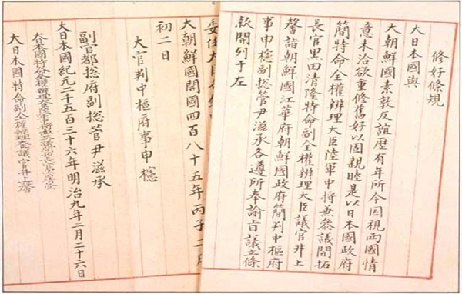 修好條規
大日本國與
大朝鮮國素敦友誼歷有年所今因視兩國情
意未洽欲重修舊好以固親睦是以日本國政府
簡特命全權辨理大臣陸軍中將兼參議開拓
長官黑田清隆特命副全權辨理大臣議官井上
馨詣朝鮮國江華府朝鮮國政府簡判中樞府
事申櫶副摠管尹滋承各遵所奉諭旨議立條
款開列于左
大朝鮮國開國四百八十五年丙子二月
初二日
大官判中樞府事申櫶
副官都摠府副摠管尹滋承
大日本國紀元二千五百三十六年明治九年二月二十六日
大日本國特命全權辨理大臣陸軍中將兼參議開拓長官黑田清隆
大日本國特命副全權辨理大臣議官井上馨